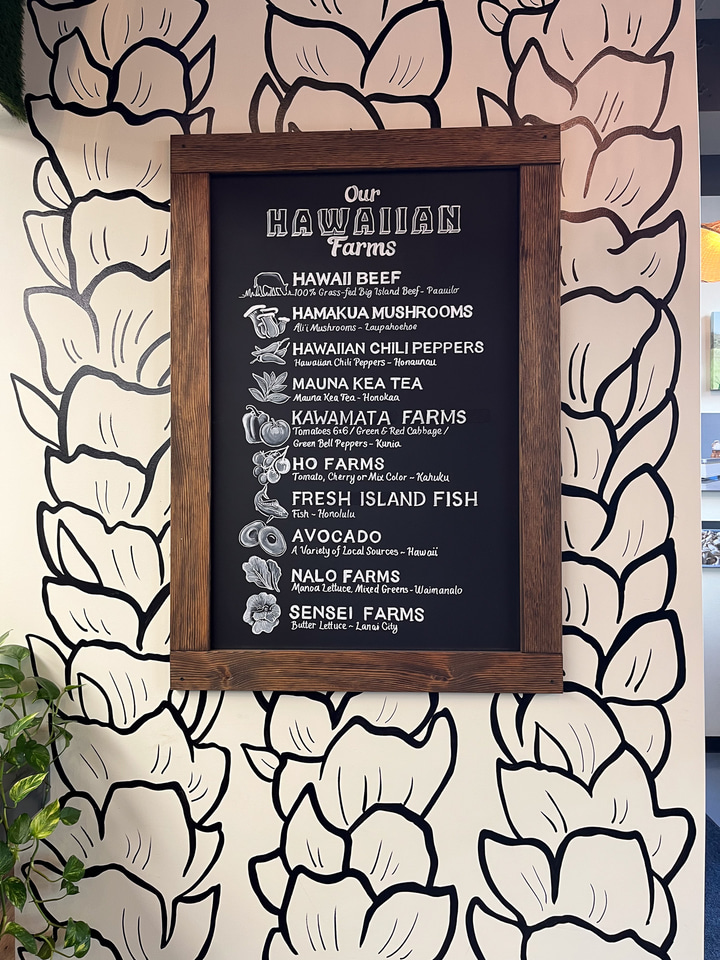 Our
HAWAIIAN
Farms
HAWAII BEEF
100% Grass-fed Big Island Beef - Paauilo
HAMAKUA MUSHROOMS
Ali'i Mushrooms - Laupahoehoe
HAWAIIAN CHILI PEPPERS
Hawaiian Chili Peppers - Honaunau
MAUNA KEA TEA
Mauna Kea Tea - Honokaa
KAWAMATA FARMS
Tomatoes 6x6 / Green & Red Cabbage /
Green Bell Peppers - Kunia
HO FARMS
Tomato, Cherry or Mix Color ~ Kahuku
FRESH ISLAND FISH
Fish ~ Honolulu
AVOCADO
A Variety of Local Sources ~ Hawaii
NALO FARMS
Manoa Lettuce, Mixed Greens - Waimanalo
SENSEI FARMS
Butter Lettuce ~ Lanai City